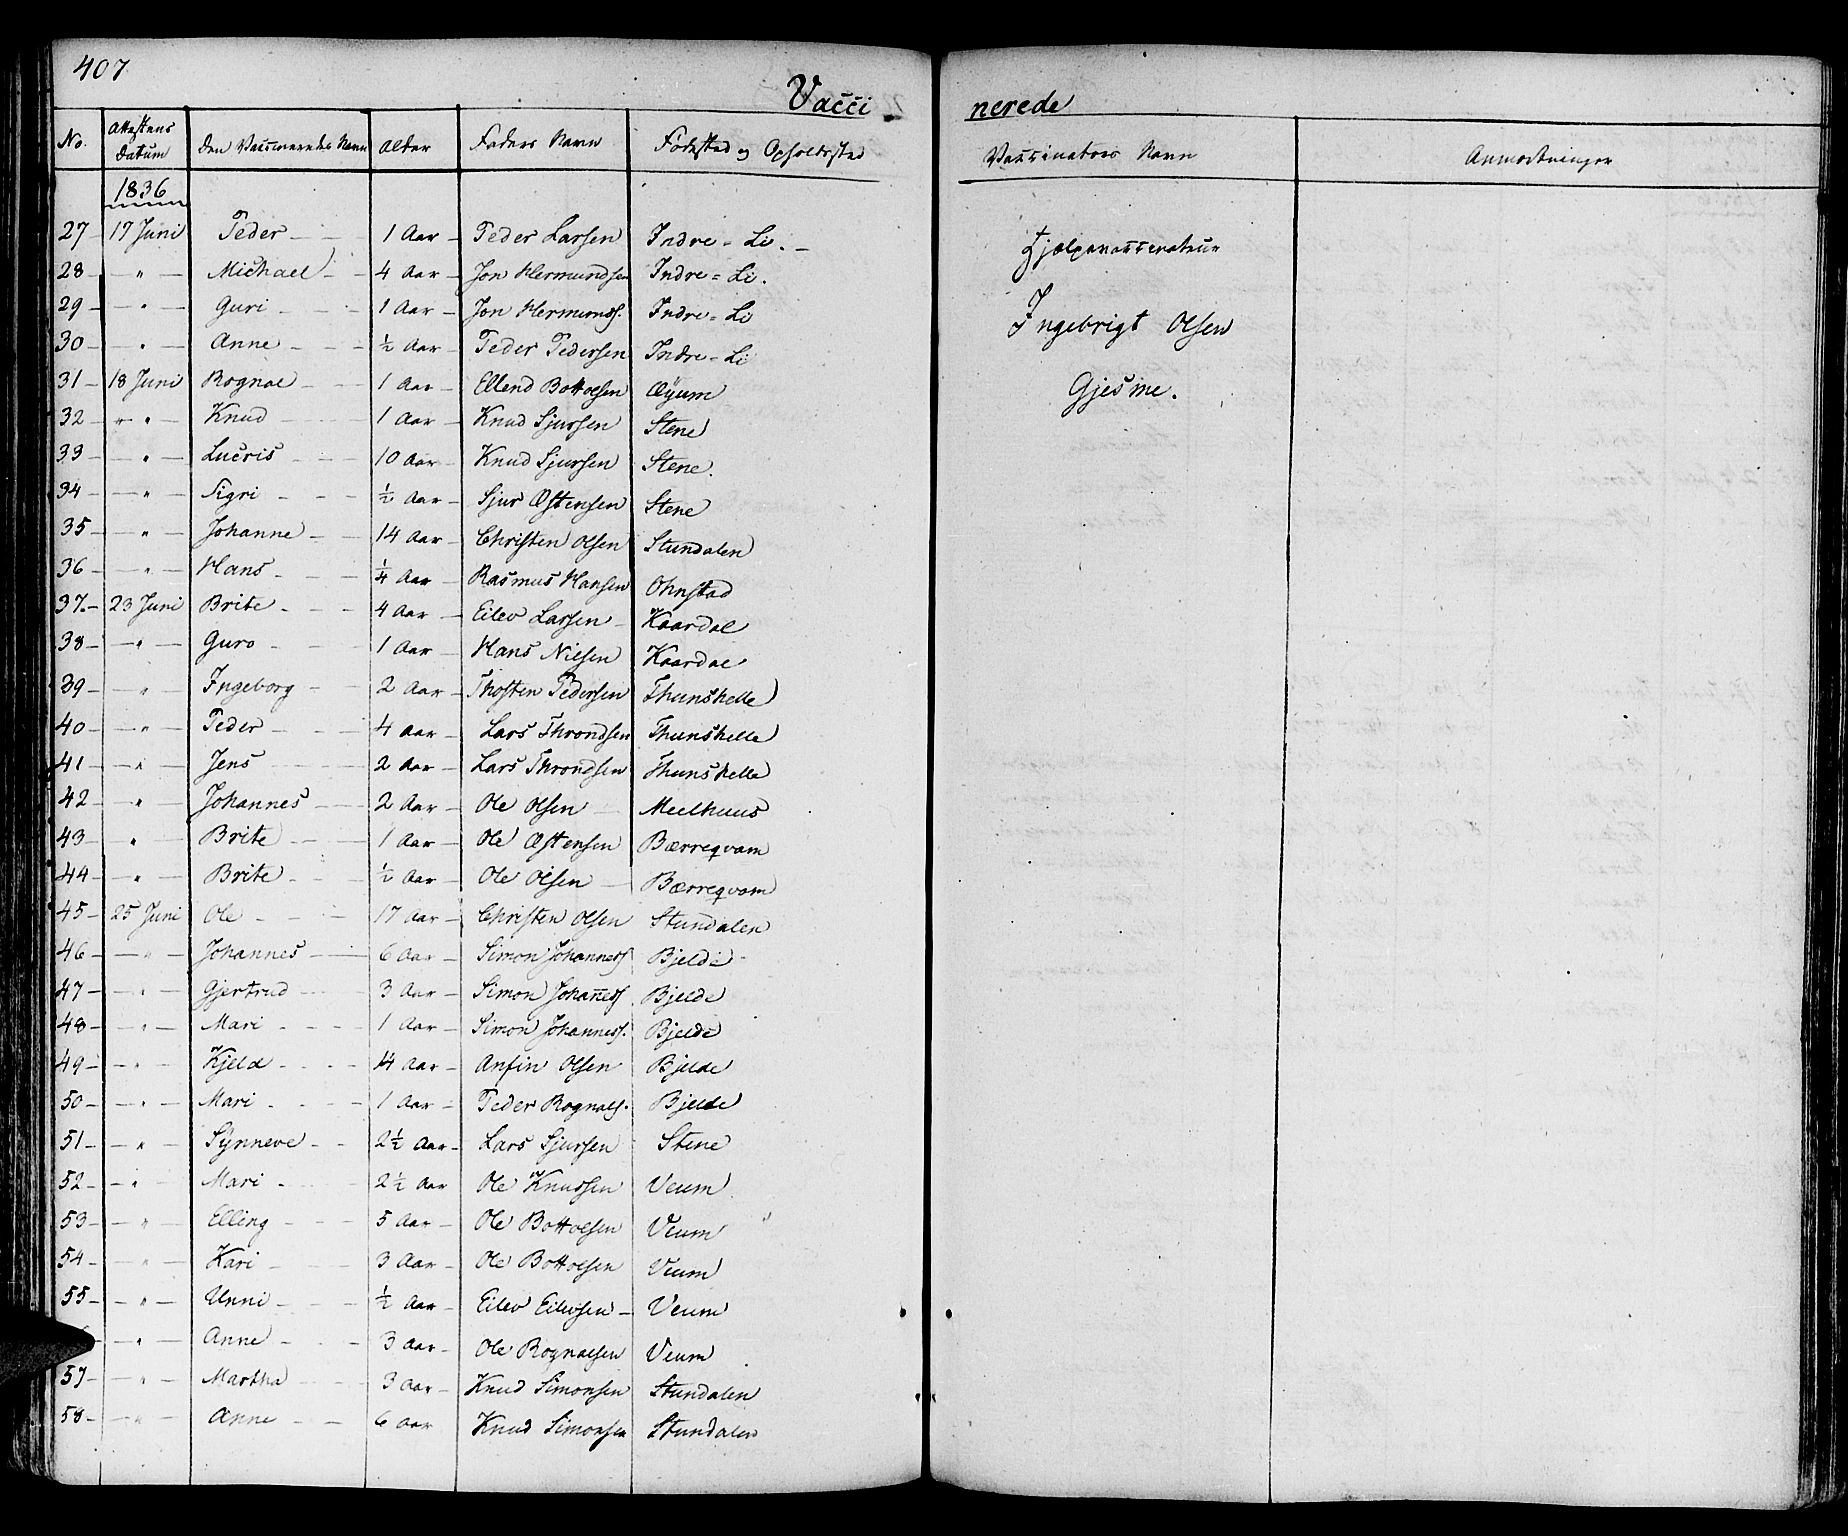 407
Vacci nerede
No. Attestens Datum Den Vaccineredes Navn Alder Faders Navn Fødested og Opholdssted Vaccinators Navn Anmærkninger
1836
27 - 17 Juni Peder - 1 Aar - Peder Larsen Indre-Li. - Hjælpevaccinateur
28 - " - Michael - 4 Aar - Jon Hermundsen Indre-Li.
29 - " - Guri - 1 Aar - Jon Hermunds. Indre-Li Ingebrigt Olsen
30 - " - Anne - ½ Aar - Peder Pedersen Indre-Li
31 - 18 Juni Rognal - 1 Aar - Ellend Bottolsen Øyum Gjesme.
32 " " - Knud - 1 Aar - Knud Sjursen Stene
33 - " - Lucris - 10 Aar - Knud Sjursen Stene.
34 - " - Sigri - ½ Aar - Sjur Østensen Stene
35 - " - Johanne - 14 Aar - Christen Olsen Stundalen
36 - " - Hans - ¼ Aar - Rasmus Hansen Ohnstad
37. - 23 Juni Brite - 4 Aar - Eilev Larsen - Kaardal
38 - " - Guro - 1 Aar - Hans Nielsen Kaardal
39 - " - Ingeborg - 2 Aar - Thosten Pedersen Thunshelle
40 - " - Peder - 4 Aar - Lars Throndsen Thunshelle
41 - " - Jens - 2 Aar - Lars Throndsen Thunshelle
42 - " - Johannes - 2 Aar - Ole Olsen - Meelhuus
43 - " - Brite - 1 Aar - Ole Østensen Bærreqvam
44 - " - Brite - ½ Aar - Ole Olsen - Bærreqvam
45 - 25 Juni Ole - 17 Aar - Christen Olsen Stundalen
46 - " - Johannes - 6 Aar - Simon Johanness Bjelde
47 - " - Gjertrud - 3 Aar - Simon Johañess Bjelde
48 - " - Mari - 1 Aar - Simon Johanness. Bjelde
49 - " - Kjeld - 14 Aar - Anfin Olsen Bjelde
50 - " - Mari - 1 Aar - Peder Rognals. Bjelde
51 - " - Synneve - 2½ Aar - Lars Sjursen Stene
52 - " - Mari - 2½ Aar Ole Knussen Veum
53 - " - Elling - 5 Aar - Ole Bottolsen Veum
54 - " - Kari - 3 Aar - Ole Bottolsen Veum
55 - " - Unni - ½ Aar - Eilev Eilevsen - Veum
- " - Anne - 3 Aar - Ole Rognalsen Veum
57 - " - Martha - 3 Aar - Knud Simonsen Stundalen
58 - " - Anne - 6 Aar Knud Simonsen Stundalen